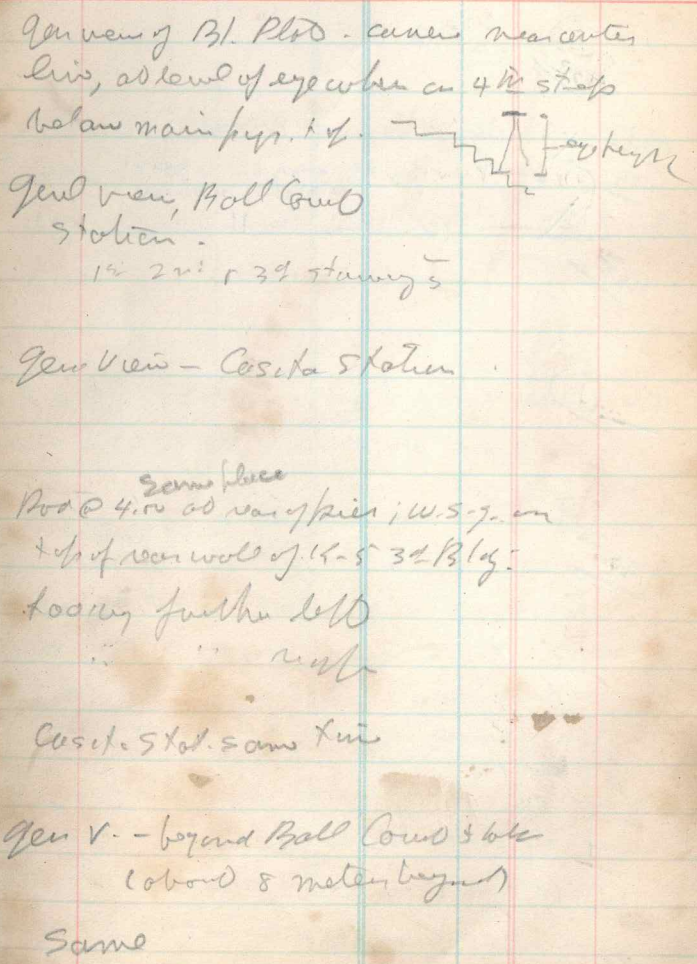 Gen view of Bl. Plat. - camera near center
line, at level of eye when on 4th step
below main pyr. top.
eye height
Genl view, Ball Court
Station.
1st 2nd & 3d stairways
Gen View - Casita Station
same place
Rod @ 4.00 at rear of pier; W.S.g. on
top of rear wall of K-5 3d Bldg.
looking further left
" " right
Casita Stat. same time
Gen V. - beyond Ball Court stake
(about 8 meters beyond)
Same